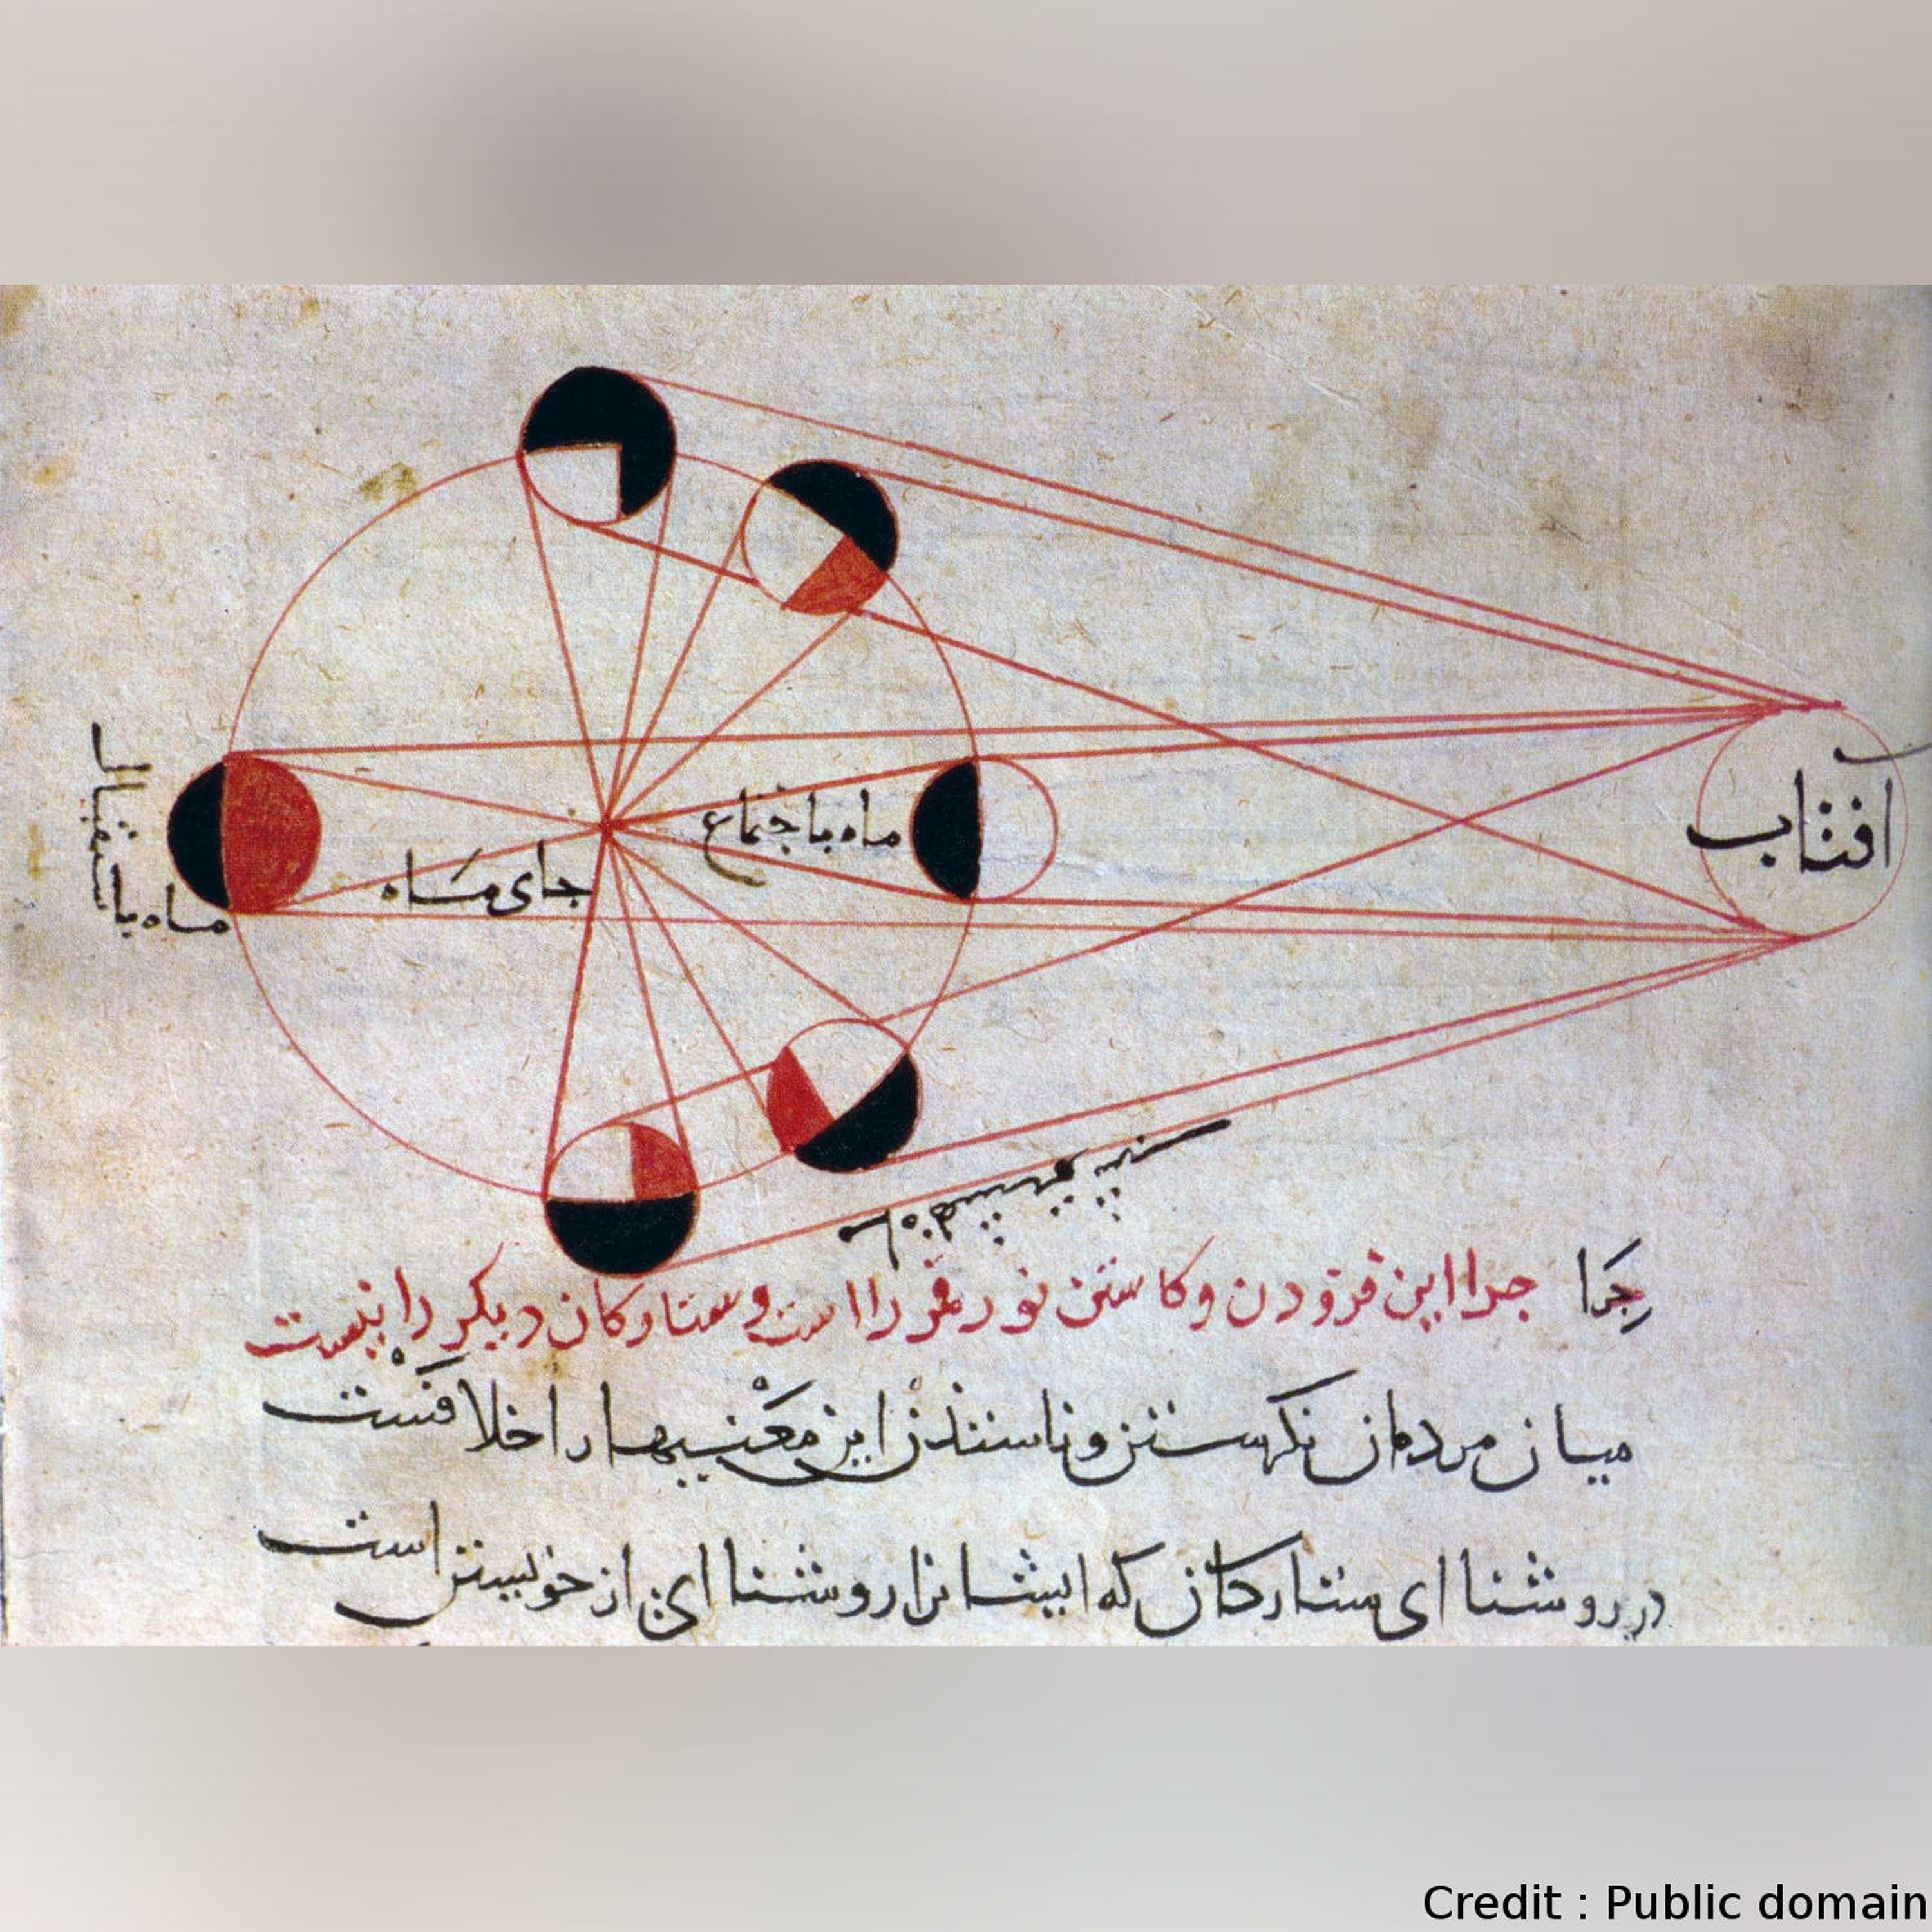 آفتاب
ماه باجتماع
جای ماه
ماه باستقبال
چرا این فزودن و کاستن نور قمر را است و ستارکان دیکر را نیست
میان مردمان نکرستن و ناستدن این معنیها را خلافست
در روشنا ای ستارکان که ایشانرا روشنا ای از خویشتن است
Credit : Public domain